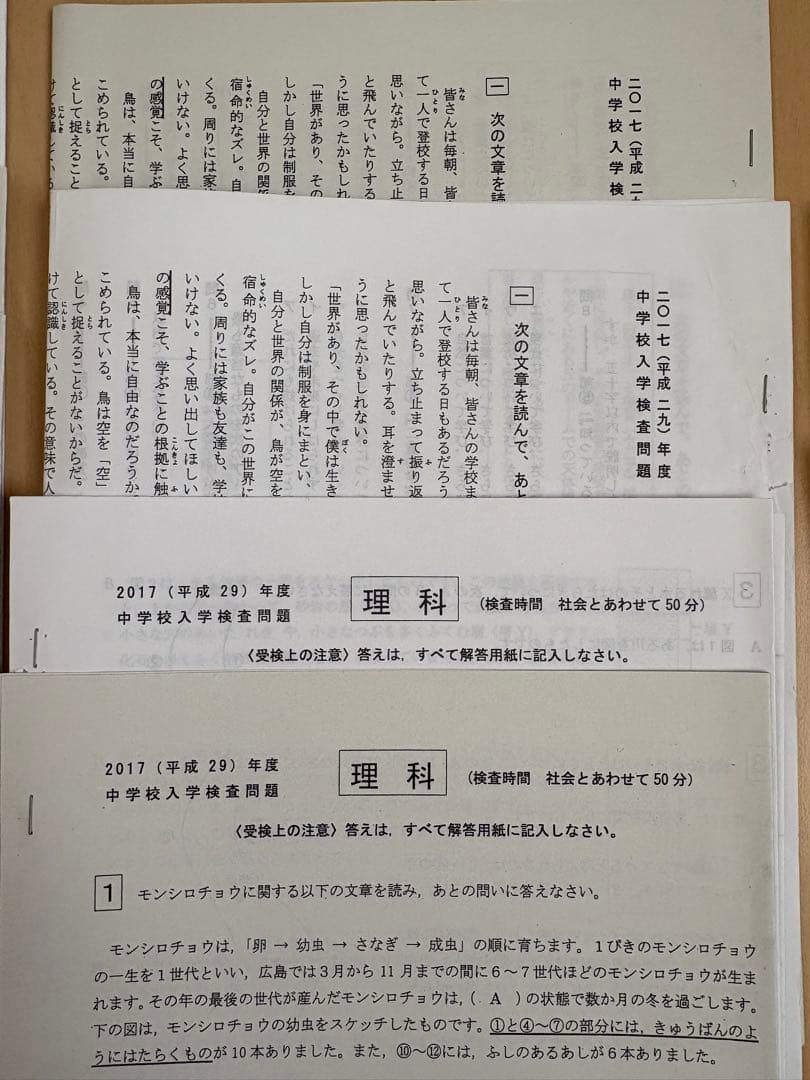 二〇一七（平成 二
中学校入学検
一 次の文章を読
みな
皆さんは毎朝、皆
ひとり
て一人で登校する日
思いながら。立ち止
と飛んでいたりする
うに思ったかもしれ
「世界があり、その
しかし自分は制服を
自分と世界の関係
しゅくめい
宿命的なズレ。自
くる。周りには家
いけない。よく思
の感覚こそ、学ぶ
鳥は、本当に自
こめられている。
とら
として捉えること
にんしき
けて認識している
二〇一七（平成 二九）年度
中学校入学検査問題
一 次の文章を読んで、あと
みな
皆さんは毎朝、皆さんの学校ま
ひとり
て一人で登校する日もあるだろう
ふ
思いながら。立ち止まって振り返
す
と飛んでいたりする。耳を澄ませ
うに思ったかもしれない。
ぼく
「世界があり、その中で僕は生き
しかし自分は制服を身にまとい、
自分と世界の関係が、鳥が空を
しゅくめい
宿命的なズレ。自分がこの世界に
くる。周りには家族も友達も、学
いけない。よく思い出してほしい
こんきょ ふ
の感覚こそ、学ぶことの根拠に触
鳥は、本当に自由なのだろうか
こめられている。鳥は空を「空」
とら
として捉えることがないからだ。
にんしき
けて認識している。その意味で人
2017（平成 29）年度
中学校入学検査問題
理 科
（検査時間 社会とあわせて50分）
〈受検上の注意〉答えは，すべて解答用紙に記入しなさい。
2017（平成 29）年度
中学校入学検査問題
理 科
（検査時間 社会とあわせて50分）
〈受検上の注意〉答えは，すべて解答用紙に記入しなさい。
1 モンシロチョウに関する以下の文章を読み，あとの問いに答えなさい。
モンシロチョウは，「卵 → 幼虫 → さなぎ → 成虫」の順に育ちます。１ぴきのモンシロチョウ
の一生を１世代といい，広島では３月から 11 月までの間に６～７世代ほどのモンシロチョウが生ま
れます。その年の最後の世代が産んだモンシロチョウは，（ A ）の状態で数か月の冬を過ごします。
下の図は，モンシロチョウの幼虫をスケッチしたものです。①と④～⑦の部分には，きゅうばんのよ
うにはたらくものが 10 本ありました。また，⑩～⑫には，ふしのあるあしが６本ありました。